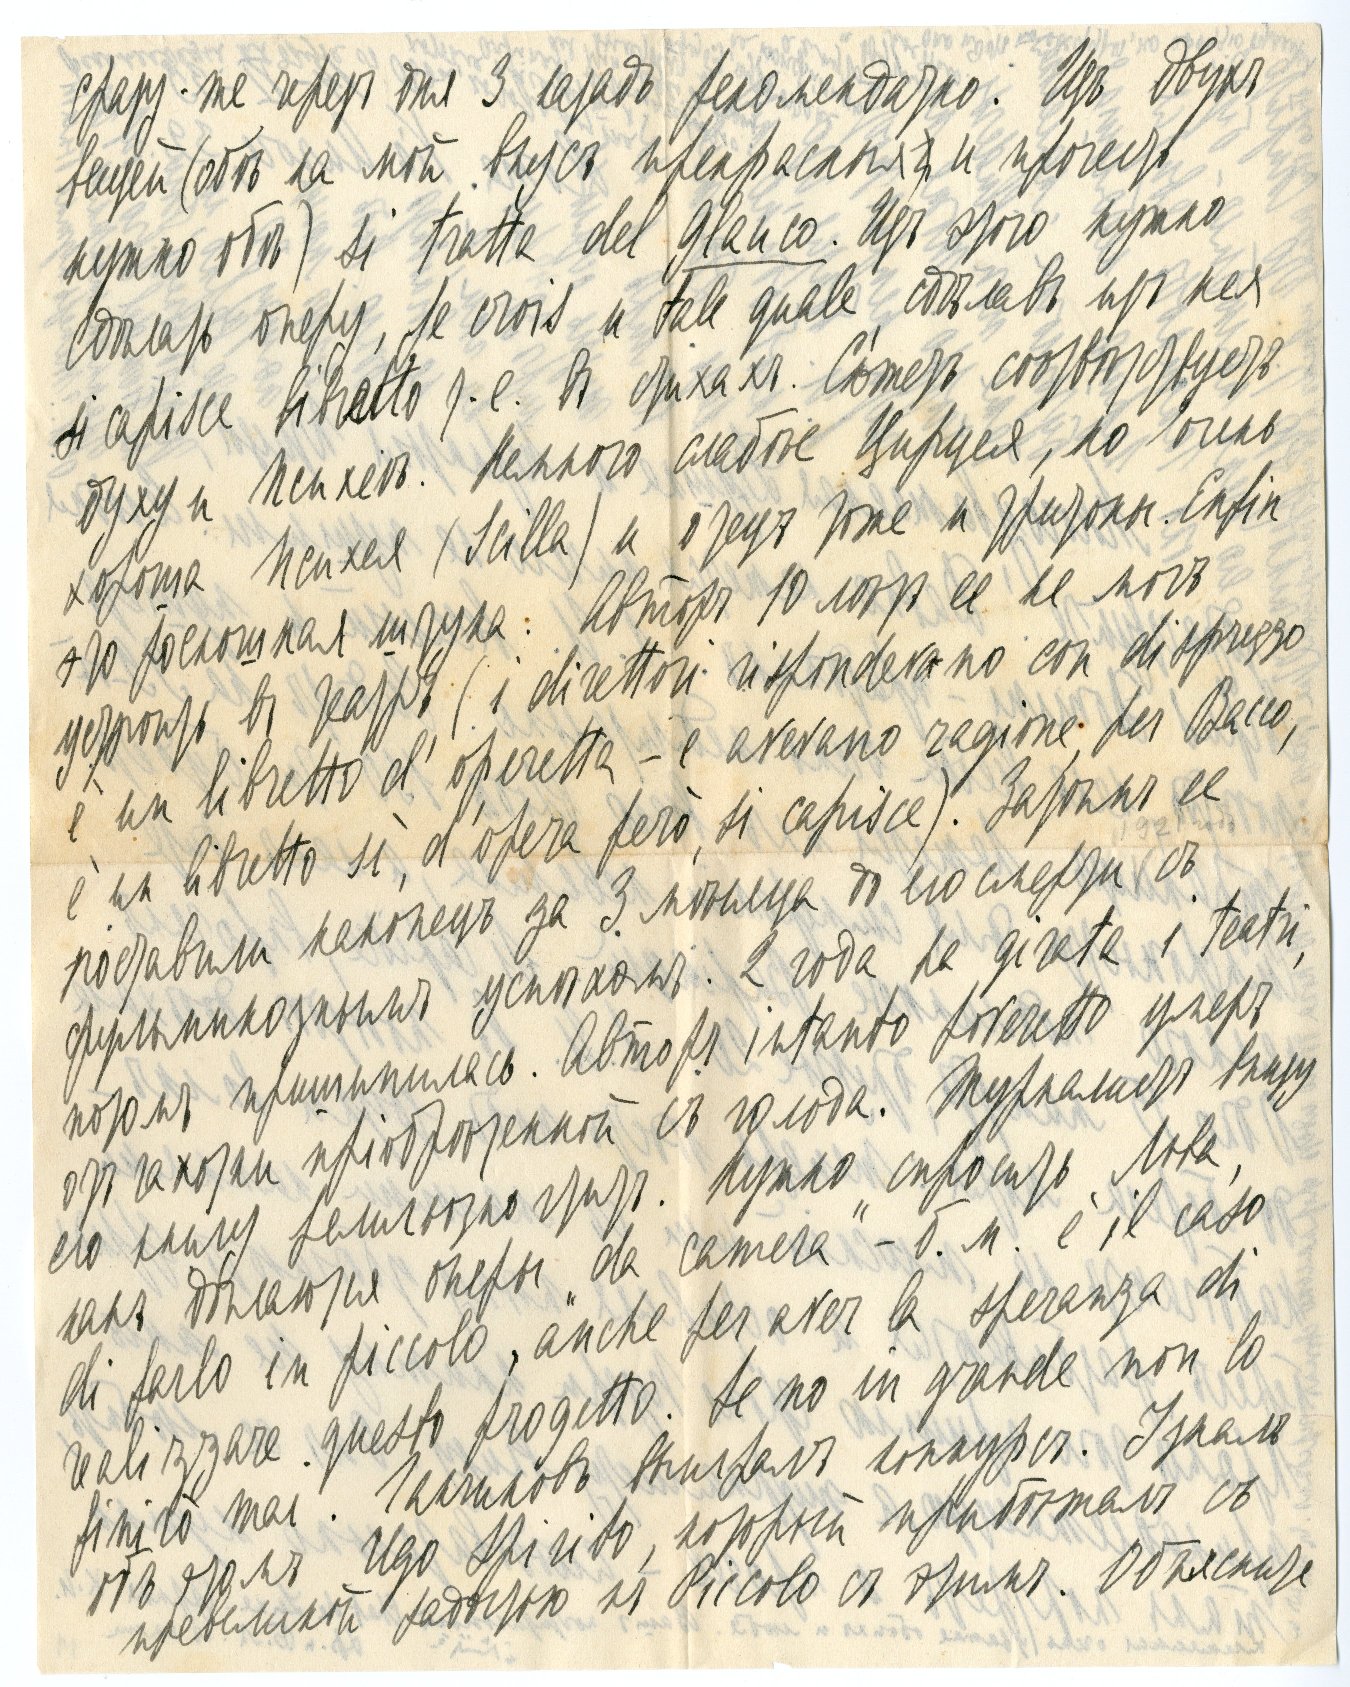 сразу-же черезъ дня 3 назадъ рекомендачно. Изъ двухъ
вещей (обѣ на мой вкусъ прекрасныя и прочесть
нужно обѣ) si tratta del Glauco. Изъ этого нужно
сдѣлать оперу, je crois и tale quale, сдѣлавъ изъ нея
si capisce libretto т.е. въ стихахъ. Сюжетъ соотвѣтствуетъ
духу и Психеѣ. Немного слабѣе Цирцея, но очень
хороша Психея (Scilla) и отецъ тоже и тритоны. Enfin
это роскошная штука. Авторъ 10 лѣтъ ее не могъ
устроить въ театрѣ (i direttori rispondevano con disprezzo
è un libretto d'operetta – e avevano ragione, per Bacco,
è un libretto sì, d'opera però, si capisce). Затѣмъ ее
1921 года
поставили наконецъ за 3 мѣсяца до его смерти съ
фульминознымъ успѣхомъ. 2 года ha girata i teatri,
потомъ пришипилась. Авторъ intanto poveretto умеръ
отъ чахотки пріобрѣтенной съ голода. Журналистъ книгу
его книгу   . Нужно спросить Льва,
какъ дѣлаются оперы „da camera" – б. м. è il caso
di farlo in piccolo, anche per aver la speranza di
realizzare questo progetto. Se no in grande non lo
finirò mai. выигралъ конкурсъ. Узналъ
объ этомъ Ugo Spirito, который прибѣжалъ съ
превеликой радостью къ Piccolo съ этимъ. Объясните